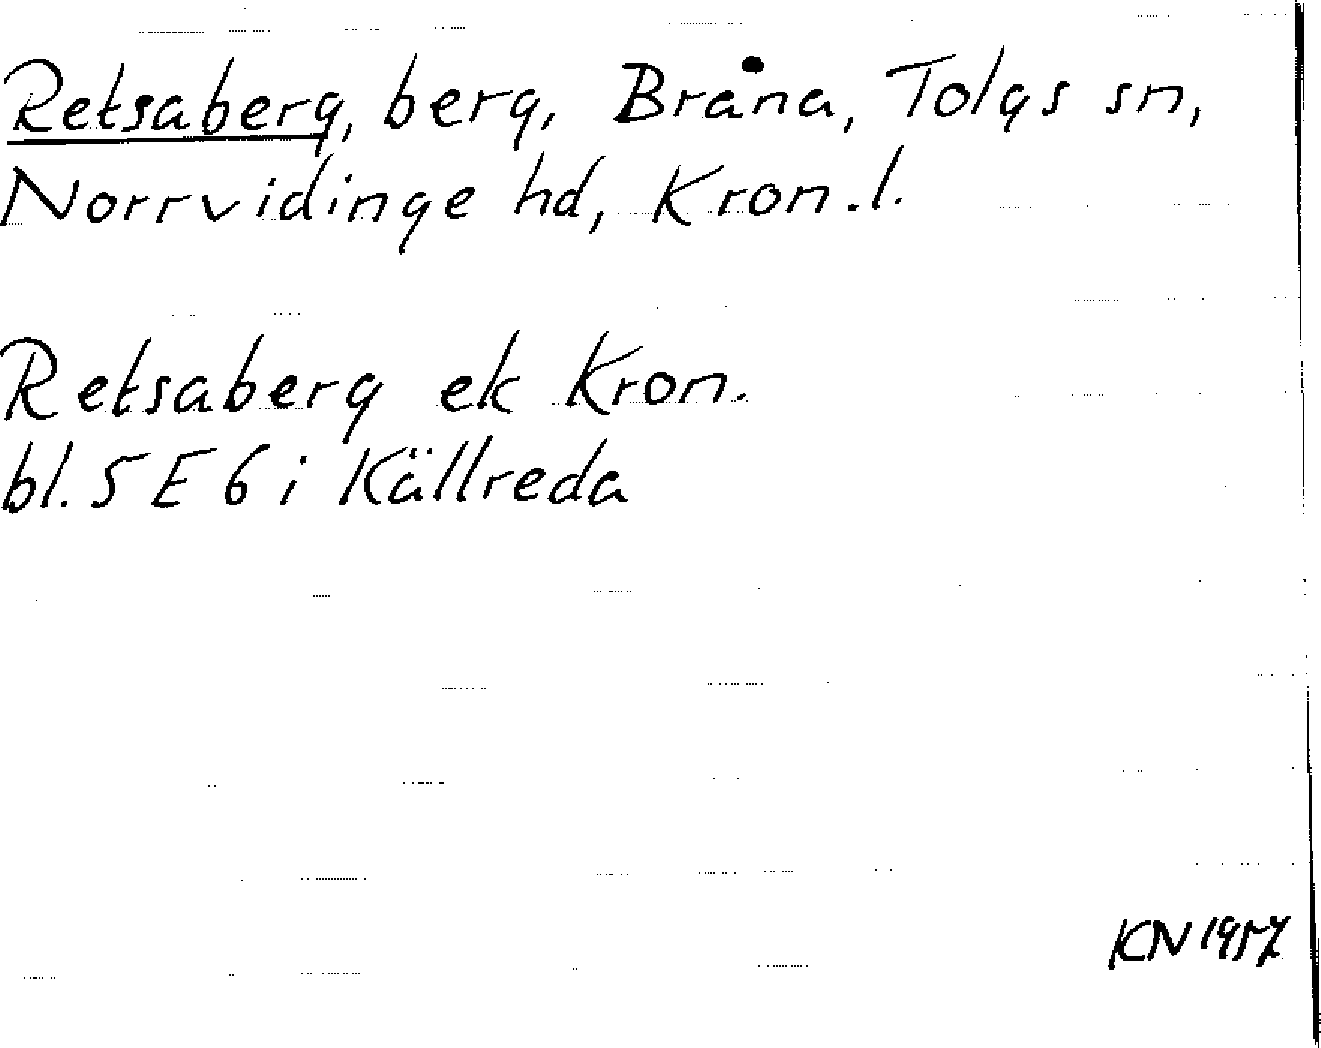 Retsaberg, berg, Bråna, Tolgs sn,
Norrvidinge hd, Kron.l.
Retsaberg ek Kron.
bl. 5 E 6 i Källreda
KN 1957